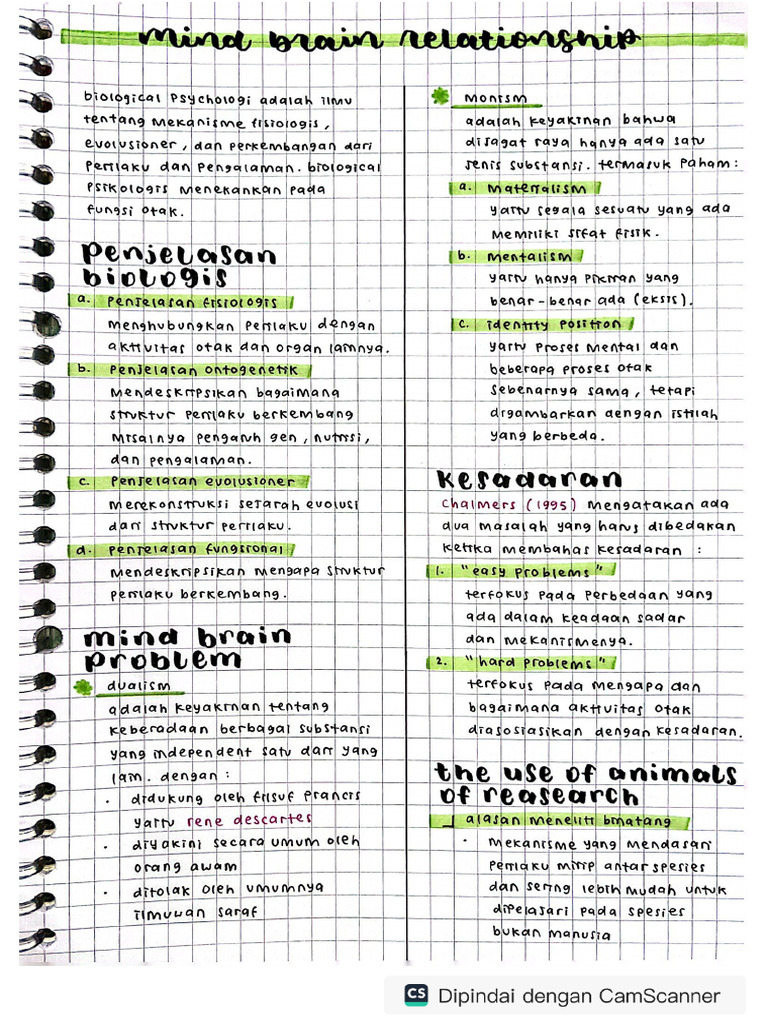 mind brain relationship
biological psychologi adalah ilmu
tentang mekanisme fisiologis,
evolusioner, dan perkembangan dari
perilaku dan pengalaman. biological
psikologis menekankan pada
fungsi otak.
penjelasan
biologis
a. penjelasan fisiologis
menghubungkan perilaku dengan
aktivitas otak dan organ lainnya.
b. penjelasan ontogenetik
mendeskripsikan bagaimana
struktur perilaku berkembang
misalnya pengaruh gen, nutrisi,
dan pengalaman.
c. penjelasan evolusioner
merekonstruksi sejarah evolusi
dari struktur perilaku.
d. penjelasan fungsional
mendeskripsikan mengapa struktur
perilaku berkembang.
mind brain
problem
dualism
adalah keyakinan tentang
keberadaan berbagai substansi
yang independent satu dari yang
lain. dengan :
· didukung oleh filsuf prancis
yaitu rene descartes
· diyakini secara umum oleh
orang awam
· ditolak oleh umumnya
ilmuwan saraf
monism
adalah keyakinan bahwa
disagat raya hanya ada satu
jenis substansi. termasuk paham :
a. materialism
yaitu segala sesuatu yang ada
memiliki sifat fisik.
b. mentalism
yaitu hanya pikiran yang
benar-benar ada (eksis).
c. identity position
yaitu proses mental dan
beberapa proses otak
sebenarnya sama, tetapi
digambarkan dengan istilah
yang berbeda.
kesadaran
chalmers (1995) mengatakan ada
dua masalah yang harus dibedakan
ketika membahas kesadaran :
1. "easy problems"
terfokus pada perbedaan yang
ada dalam keadaan sadar
dan mekanismenya.
2. "hard problems"
terfokus pada mengapa dan
bagaimana aktivitas otak
diasosiasikan dengan kesadaran.
the use of animals
of reasearch
alasan meneliti binatang
· mekanisme yang mendasari
perilaku mirip antar spesies
dan sering lebih mudah untuk
dipelajari pada spesies
bukan manusia
CS Dipindai dengan CamScanner